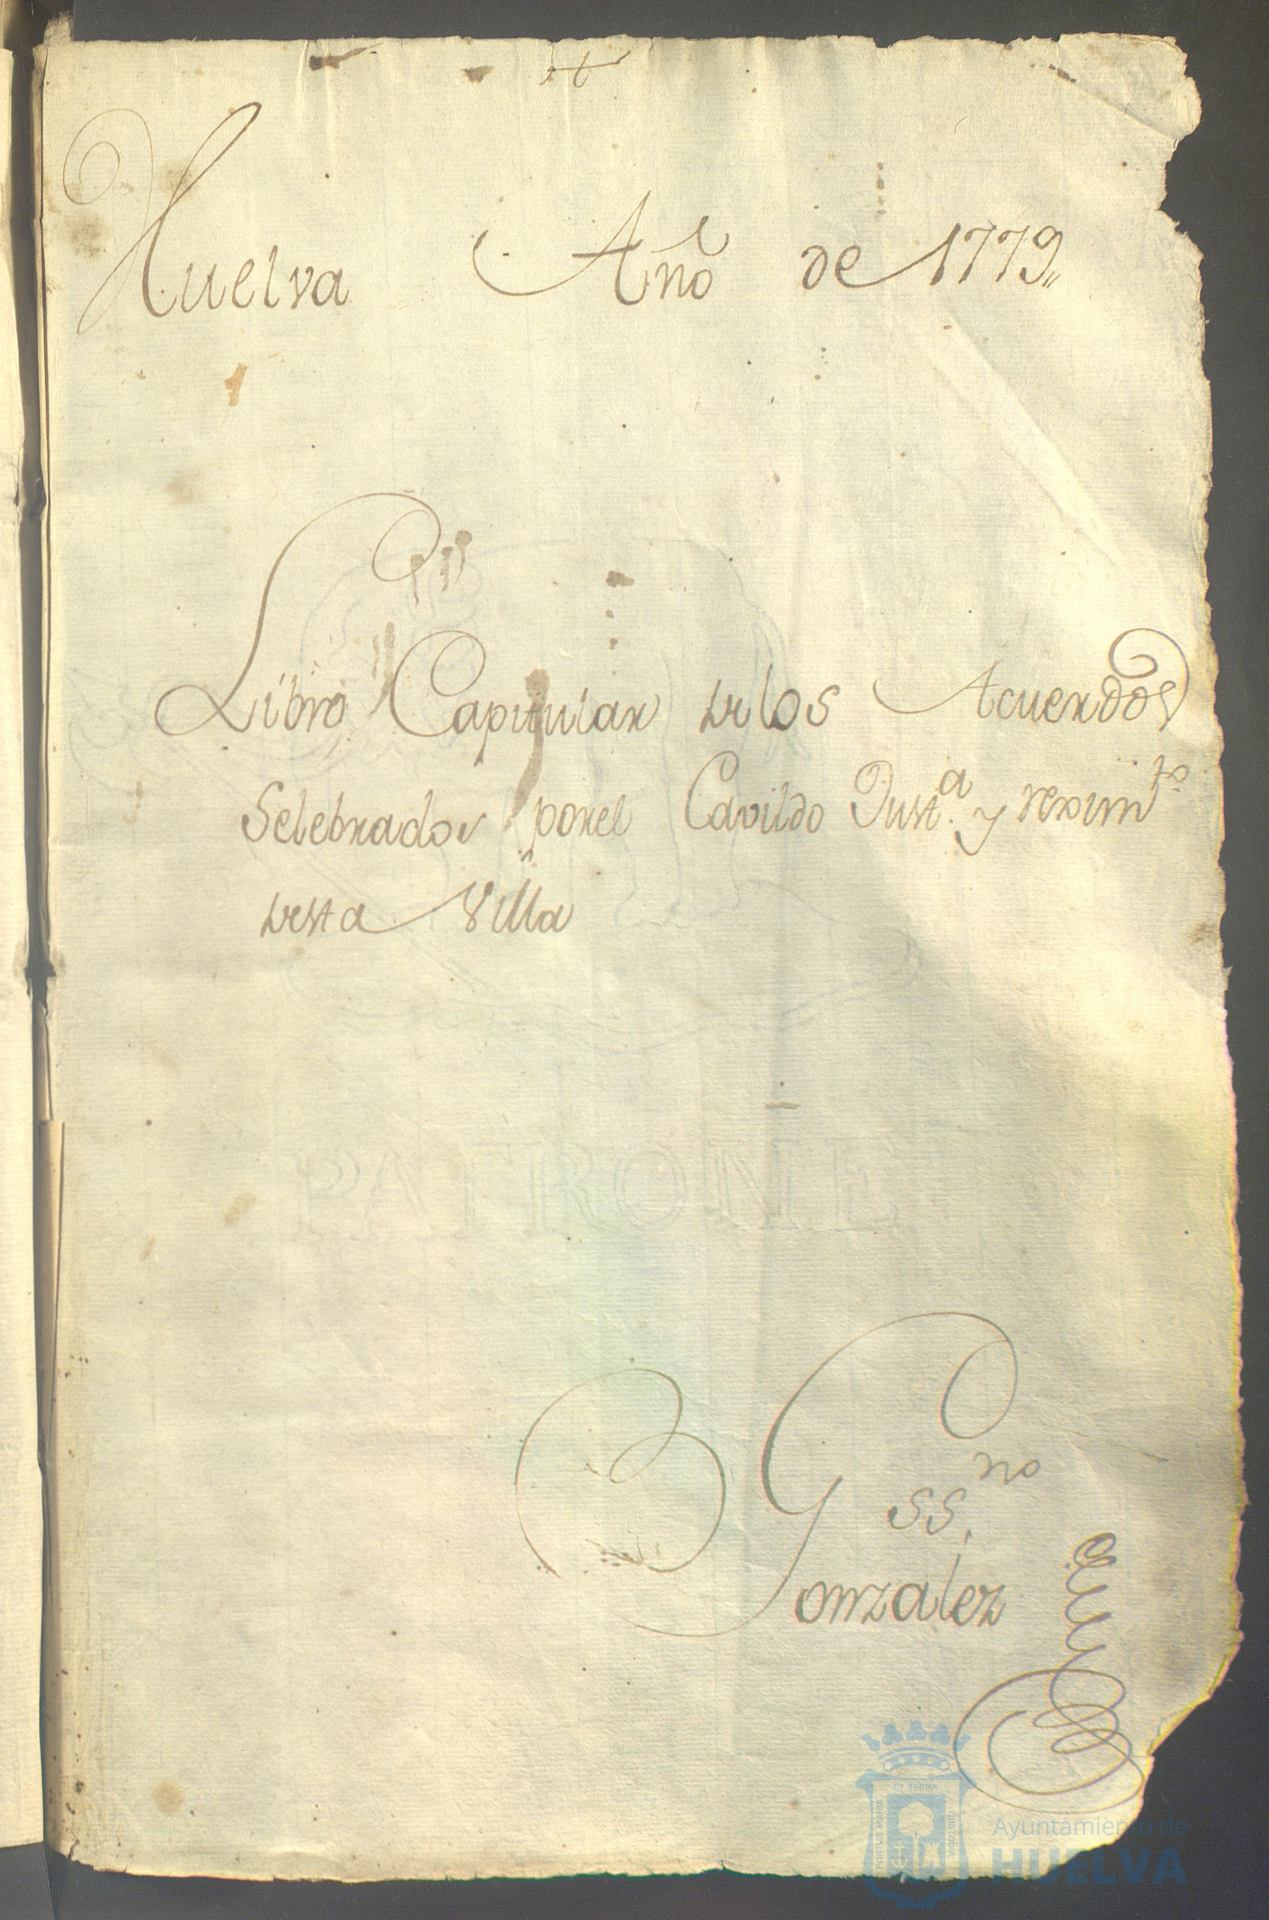 Huelva Año de 1779,,
Libro Capitular delos Acuerdos
Selebrados porel Cavildo Justª. y reximto
desta Villa
ssno.
Gonzalez
PATRONE
Ayuntamiento de
HUELVA